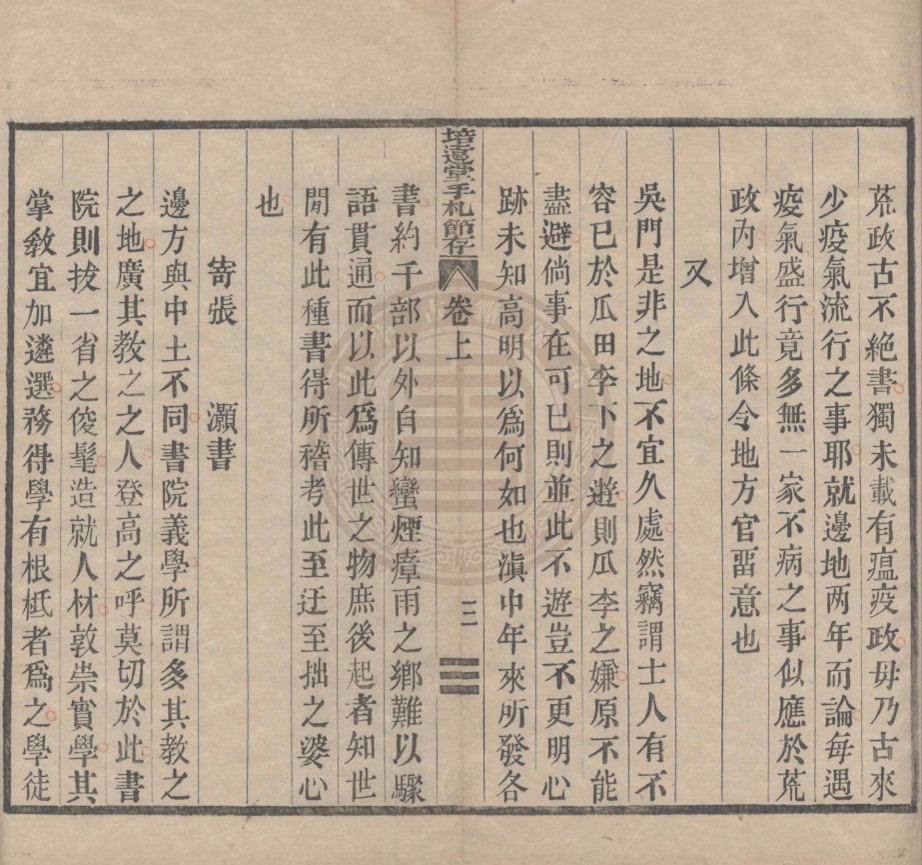 荒政古不絕書獨未載有瘟疫政毋乃古來
少疫氣流行之事耶就邊地两年而論每遇
疫氣盛行竟多無一家不病之事似應於荒
政內增入此條令地方官畱意也
又
吳門是非之地不宜久處然竊謂士人有不
容已於瓜田李下之遊則瓜李之嫌原不能
盡避倘事在可已則並此不遊豈不更明心
跡未知高明以爲何如也滇中年來所發各
培遠堂手札節存
卷上
三
書約千部以外自知蠻煙瘴雨之鄉難以驟
語貫通而以此爲傳世之物庶後起者知世
閒有此種書得所稽考此至迂至拙之婆心
也
寄張 灝書
邊方與中土不同書院義學所謂多其教之
之地廣其教之之人登高之呼莫切於此書
院則拔一省之俊髦造就人材敦崇實學其
掌教宜加遴選務得學有根柢者爲之學徒